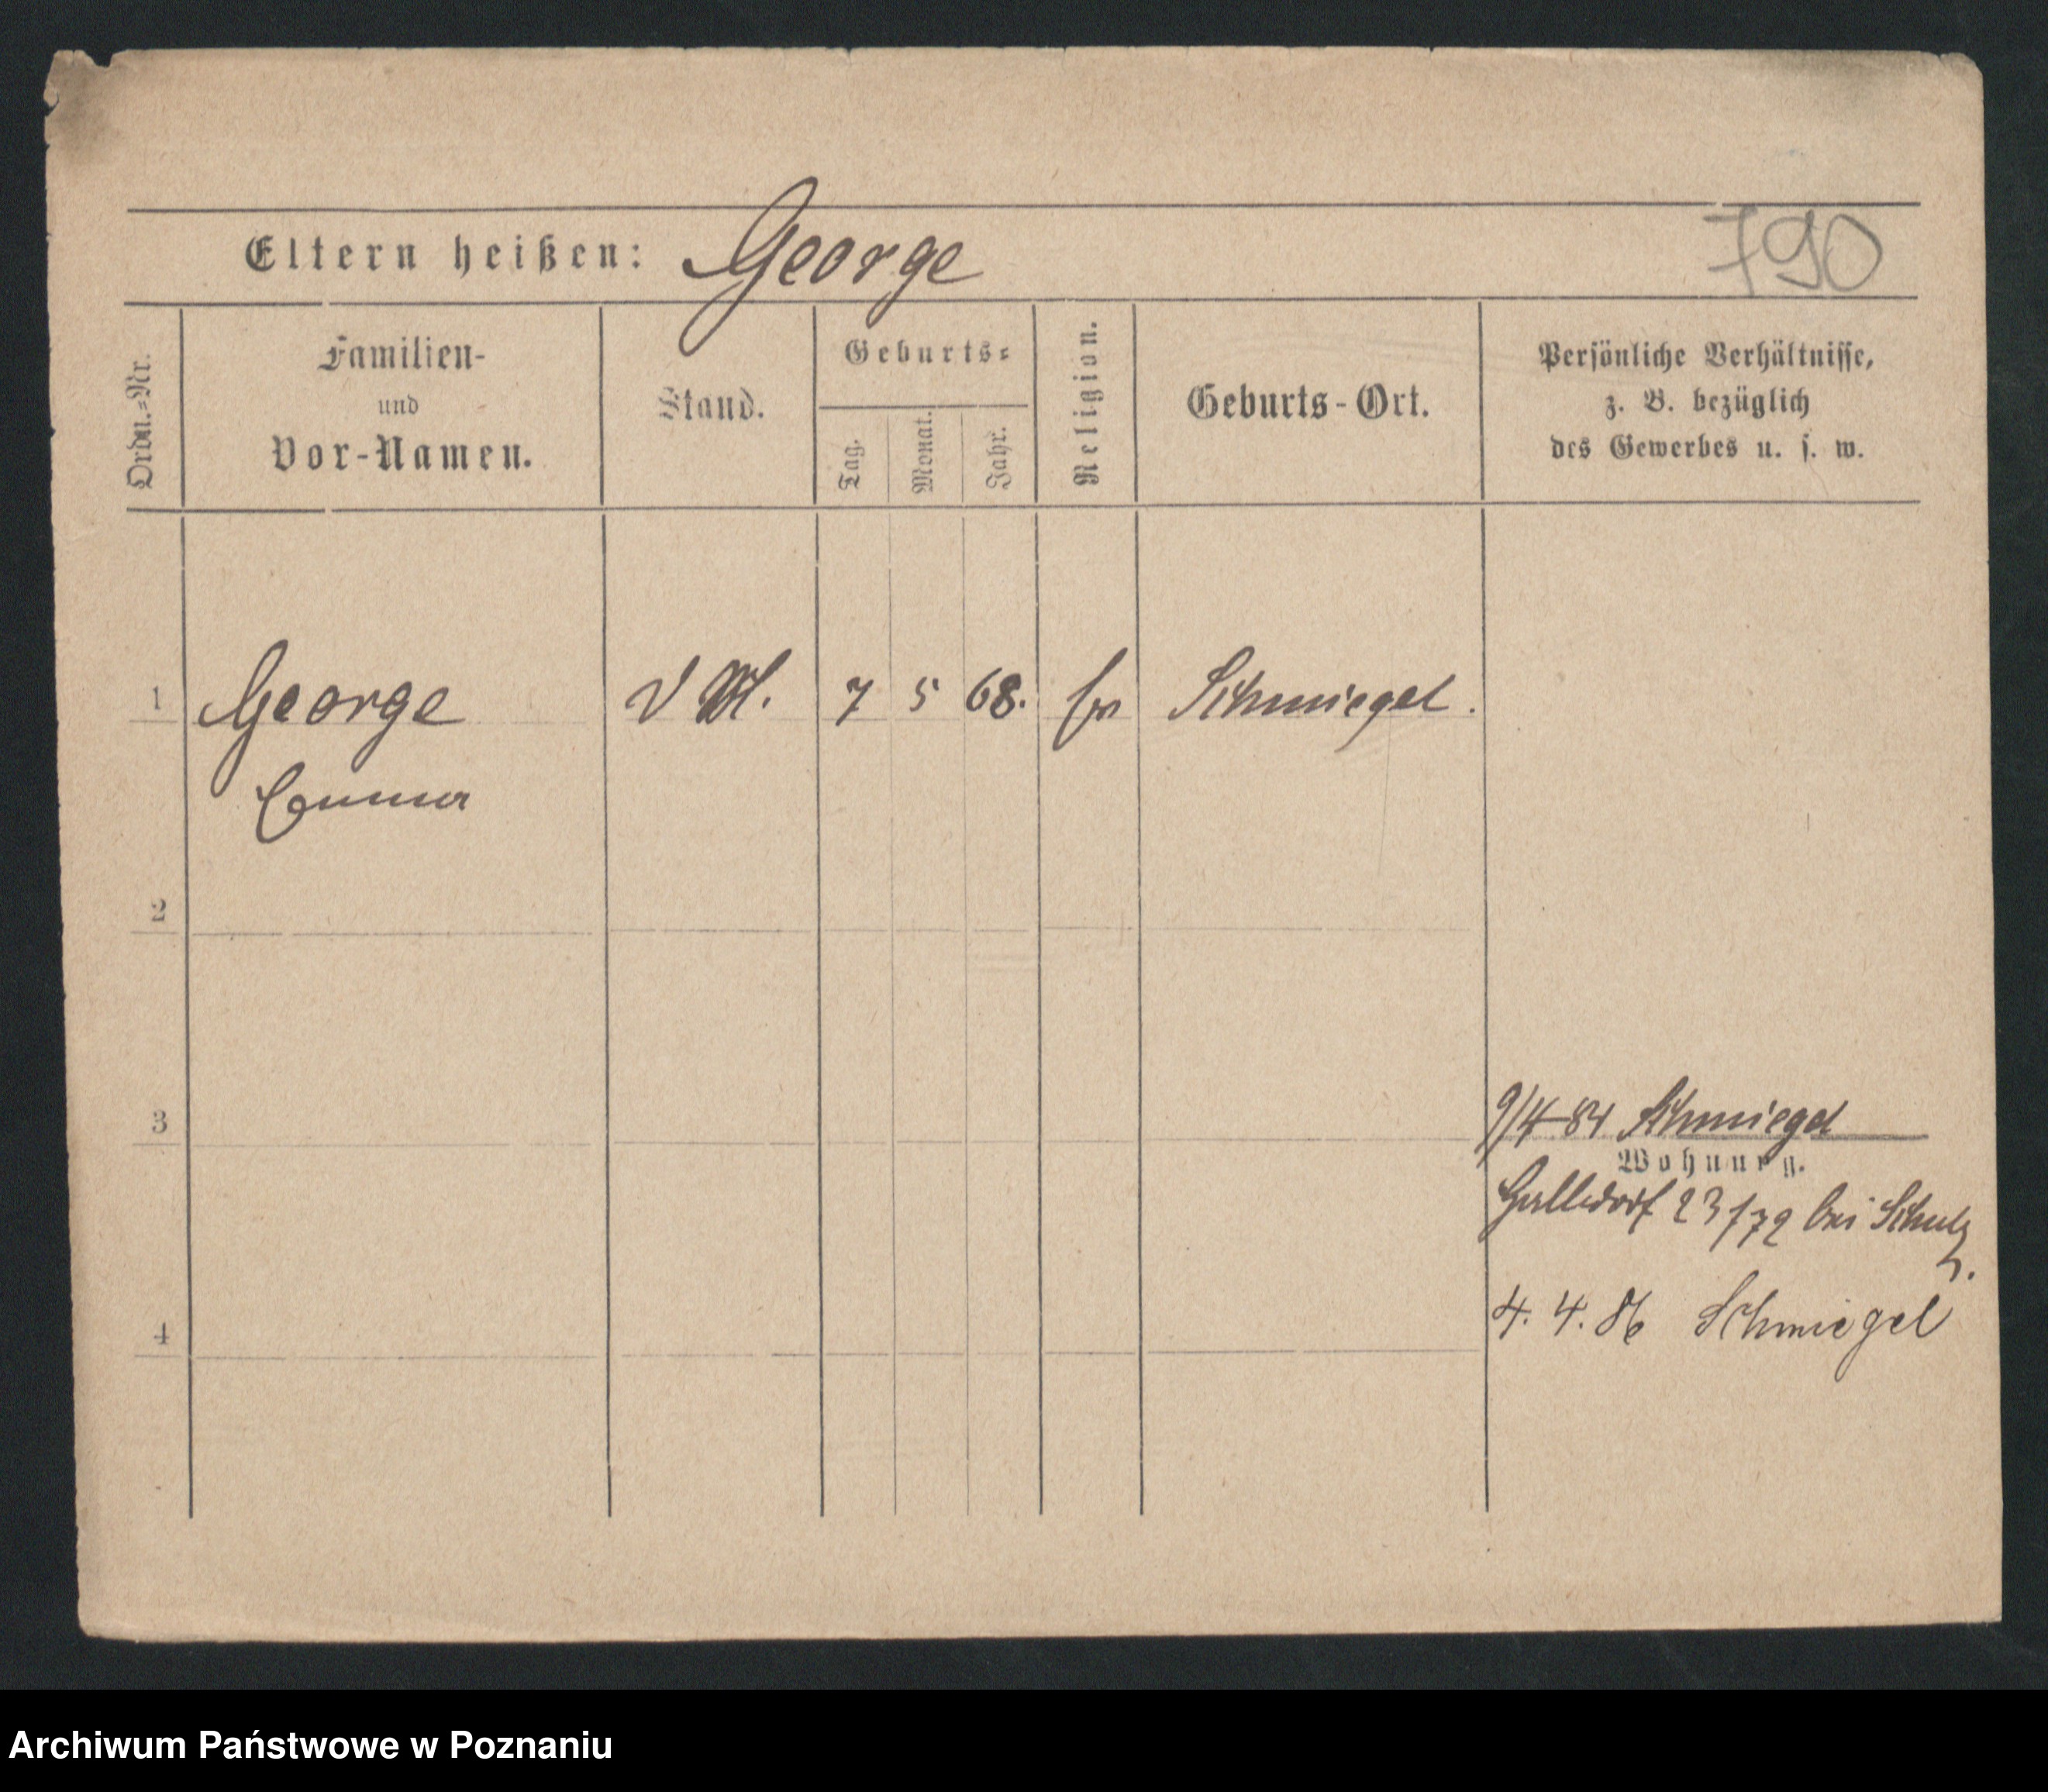 790
Eltern heißen: George
Ordn.-Nr.
Familien-
und
Vor-Namen.
Stand.
Geburts-
Tag.
Monat.
Jahr.
Religion.
Geburts-Ort.
Persönliche Verhältnisse,
z. B. bezüglich
des Gewerbes u. s. w.
1 George 7 5 68. ev Schmiegel.
Emma
2
3
9/4 84 Schmiegel
Wohnung.
23/72 bei Schulz
4. 4. 86 Schmiegel
4
Archiwum Państwowe w Poznaniu